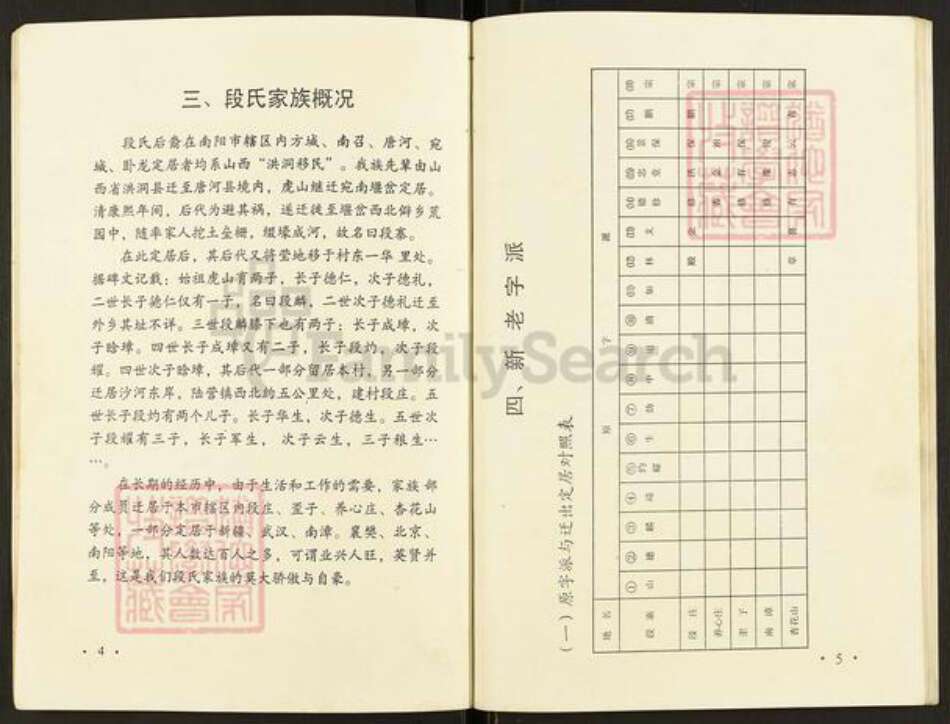 三、段氏家族概况
段氏后裔在南阳市辖区内方城、南召、唐河、宛
城、卧龙定居者均系山西“洪洞移民”。我族先辈由山
西省洪洞县迁至唐河县境内，虎山继迁宛南堰岔定居。
清康熙年间，后代为避其祸，遂迁徙至堰岔西北僻乡荒
园中，随率家人挖土垒栅，缀壕成河，故名曰段寨。
在此定居后，其后代又将茔地移于村东一华里处。
据碑文记载：始祖虎山育两子，长子德仁，次子德礼，
二世长子德仁仅有一子，名曰段麟，二世次子德礼迁至
外乡其址不详。三世段麟膝下也有两子：长子成璋，次
子晗璋。四世长子成璋又有二子，长子段灼，次子段
耀。四世次子晗璋，其后代一部分留居本村，另一部分
迁居沙河东岸，陆营镇西北约五公里处，建村段庄。五
世长子段灼有两个儿子。长子华生，次子德生。五世次
子段耀有三子，长子军生，次子云生，三子粮生…
…。
在长期的经历中，由于生活和工作的需要，家族部
分成员迁居于本市辖区内段庄、歪子、养心庄、杏花山
等处，一部分定居于新疆、武汉、南漳。襄樊、北京、
南阳等地，其人数达百人之多，可谓业兴人旺，英贤并
至，这是我们段氏家族的莫大骄傲与自豪。
· 4 ·
FamilySearch
四、新老字派
（一）原字派与迁出定居对照表
地名 原字派
段寨 ①山 ② ③麟 ④璋 ⑤灼耀 ⑥生 ⑦ ⑧中 ⑨ ⑩清 ⑪ ⑫林 ⑬文 ⑭德修 ⑮志堂 ⑯景保 ⑰鹏 ⑱宗
段庄 殿 金 修 保 鹏 宗
养心庄 宗
歪子 修 保 宗
南漳 修 俊 宗
杏花山 章 育 志 云 宗
· 5 ·